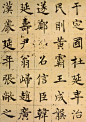 于定國杜延年治
民則黃霸王成龔
遂鄭弘召信臣韓
延壽尹翁歸趙廣
漢嚴延年張敞之